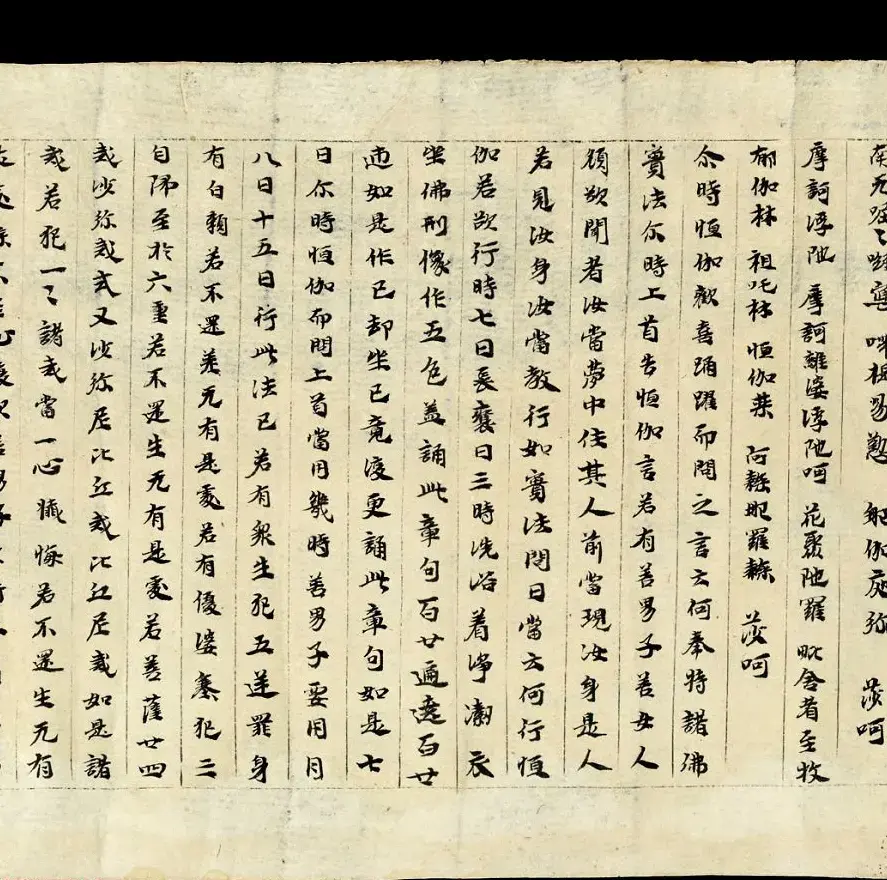 摩訶浮陁 摩訶離婆浮陁呵 花聚陁羅 毗舍者至牧
郁伽林 祖吒林 恒伽葉 阿 羅 莎呵
尒時恒伽歡喜踊躍而問之言云何奉持諸佛
實法尒時上首告恒伽言若有善男子善女人
頋欲聞者汝當夢中住其人前當現汝身是人
若見汝身汝當教行如實法問曰當云何行恒
伽若欲行時七日長齋日三時洗浴着淨潔衣
坐佛形像作五色盖誦此章句百廿遍遶百廿
迊如是作已却坐已竟復更誦此章句如是七
日尒時恒伽而問上首當用幾時善男子要用月
八日十五日行此法已若有衆生犯五逆罪身
有白癩若不還差无有是處若有優婆塞犯三
自歸至於六重若不還生无有是處若菩薩廿四
戒沙弥戒式叉沙弥尼比丘戒比丘尼戒如是諸
戒若犯一々諸戒當一心懺悔若不還生无有